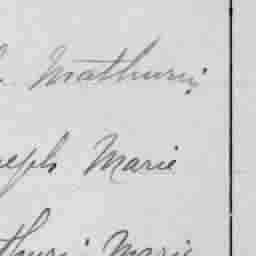 Mathurin
seph Marie
thurin Marie